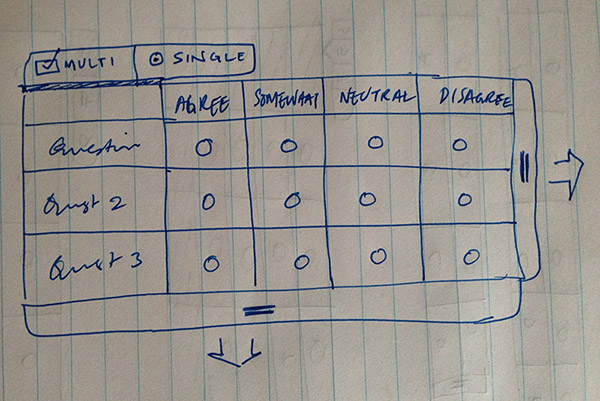 MULTI SINGLE
AGREE SOMEWHAT NEUTRAL DISAGREE
Question
Quest 2
Quest 3